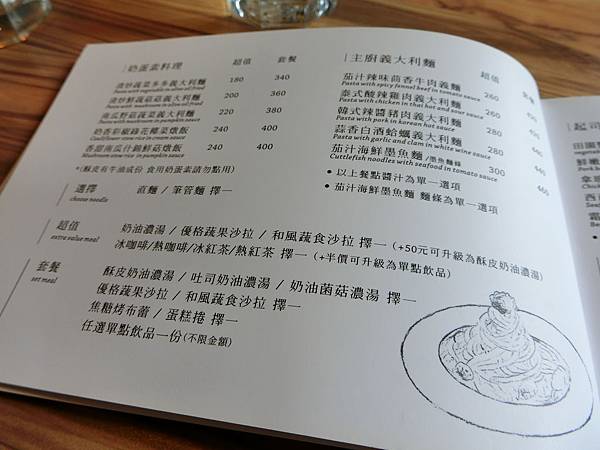 奶蛋素料理 超值 套餐
清炒蔬菜多多義大利麵 180 340
Pasta with vegetable in olive oil fried
清炒鮮蔬菇菇義大利麵 200 360
Pasta with mushroom in olive oil fried
南瓜野菇蔬菜義大利麵 220 380
Pasta with mushroom in pumpkin sauce
奶香彩椒綠花椰菜燉飯 240 400
Cauliflower stew rice in cream sauce
香甜南瓜什錦鮮菇燉飯 240 400
Mushroom stew rice in pumpkin sauce
*(酥皮有牛油成份 食用奶蛋素請勿點用)
選擇 直麵 / 筆管麵 擇一
choose noodle
超值 奶油濃湯 / 優格蔬果沙拉 / 和風蔬食沙拉 擇一 (+50元可升級為酥皮奶油濃湯)
extra value meal 冰咖啡/熱咖啡/冰紅茶/熱紅茶 擇一 (+半價可升級為單點飲品)
套餐 酥皮奶油濃湯 / 吐司奶油濃湯 / 奶油菌菇濃湯 擇一
set meal 優格蔬果沙拉 / 和風蔬食沙拉 擇一
焦糖烤布蕾 / 蛋糕捲 擇一
任選單點飲品一份(不限金額)
主廚義大利麵 超值 套餐
茄汁辣味茴香牛肉義麵 260
Pasta with spicy funnel beef in tomato sauce
泰式酸辣雞肉義大利麵 260
Pasta with chicken in thai hot and sauce
韓式辣醬豬肉義大利麵 260
Pasta with pork in korean hot sauce
蒜香白酒蛤蠣義大利麵 280 440
Pasta with garlic and clam in white wine sauce
茄汁海鮮墨魚麵/墨魚麵條 300 460
Cuttlefish noodles with seafood in tomato sauce
• 以上餐點醬汁為單一選項
• 茄汁海鮮墨魚麵 麵條為單一選項